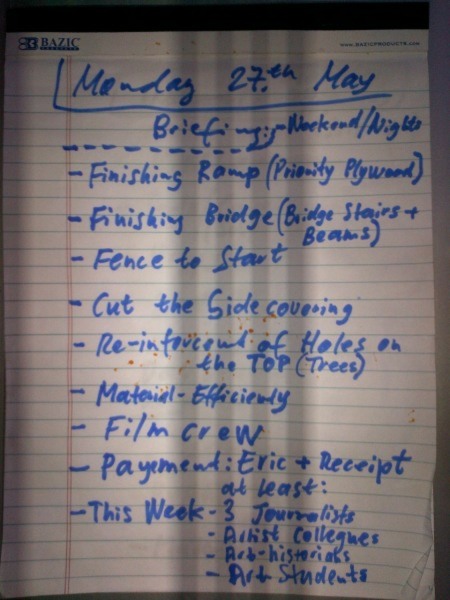 BAZIC
PRODUCTS
www.BAZICPRODUCTS.com
Monday 27.th May
Briefing:-Weekend/Nights
- Finishing Ramp (Priority Plywood)
- Finishing Bridge (Bridge Stairs +
Beams)
- Fence to Start
- Cut the Side covering
- Re-inforcent of Holes on
the TOP (Trees)
- Material-Efficienly
- Film crew
- Payement: Eric + Receipt
at least:
- This Week - 3 Journalists
- Artist Collegues
- Art-historians
- Art Students